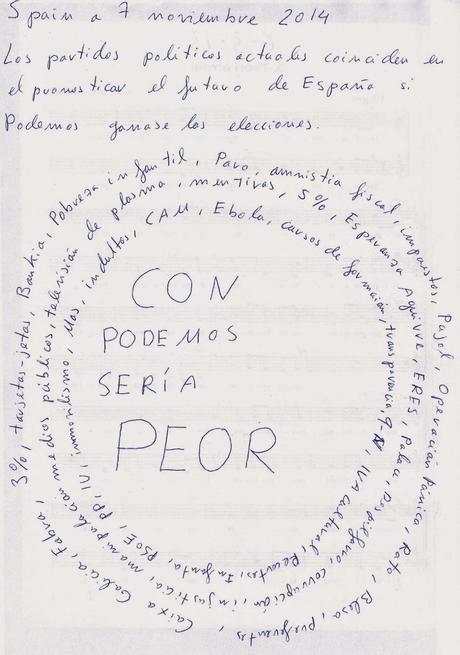 Spain a 7 noviembre 2014
Los partidos políticos actuales coinciden en
el pronosticar el futuro de España si
Podemos ganase las elecciones.
3%, tarjetas-jetas, Bankia, Pobreza infantil, Paro, amnistía fiscal, impuestos, Pujol, Operación Púnica, Rato, Blesa, preferentes, Caixa Galicia, Fabra,
manipulación medios públicos, televisión de plasma, mentiras, 5%, Esperanza Aguirre, ERES, Palau, Despilfarro, corrupción, injusticia,
PSOE, PP, IU, inmovilismo, Mas, indultos, CAM, Ebola, cursos de formación, transparencia, 9-N, IVA cultural, Recortes, Infanta,
CON
PODEMOS
SERÍA
PEOR